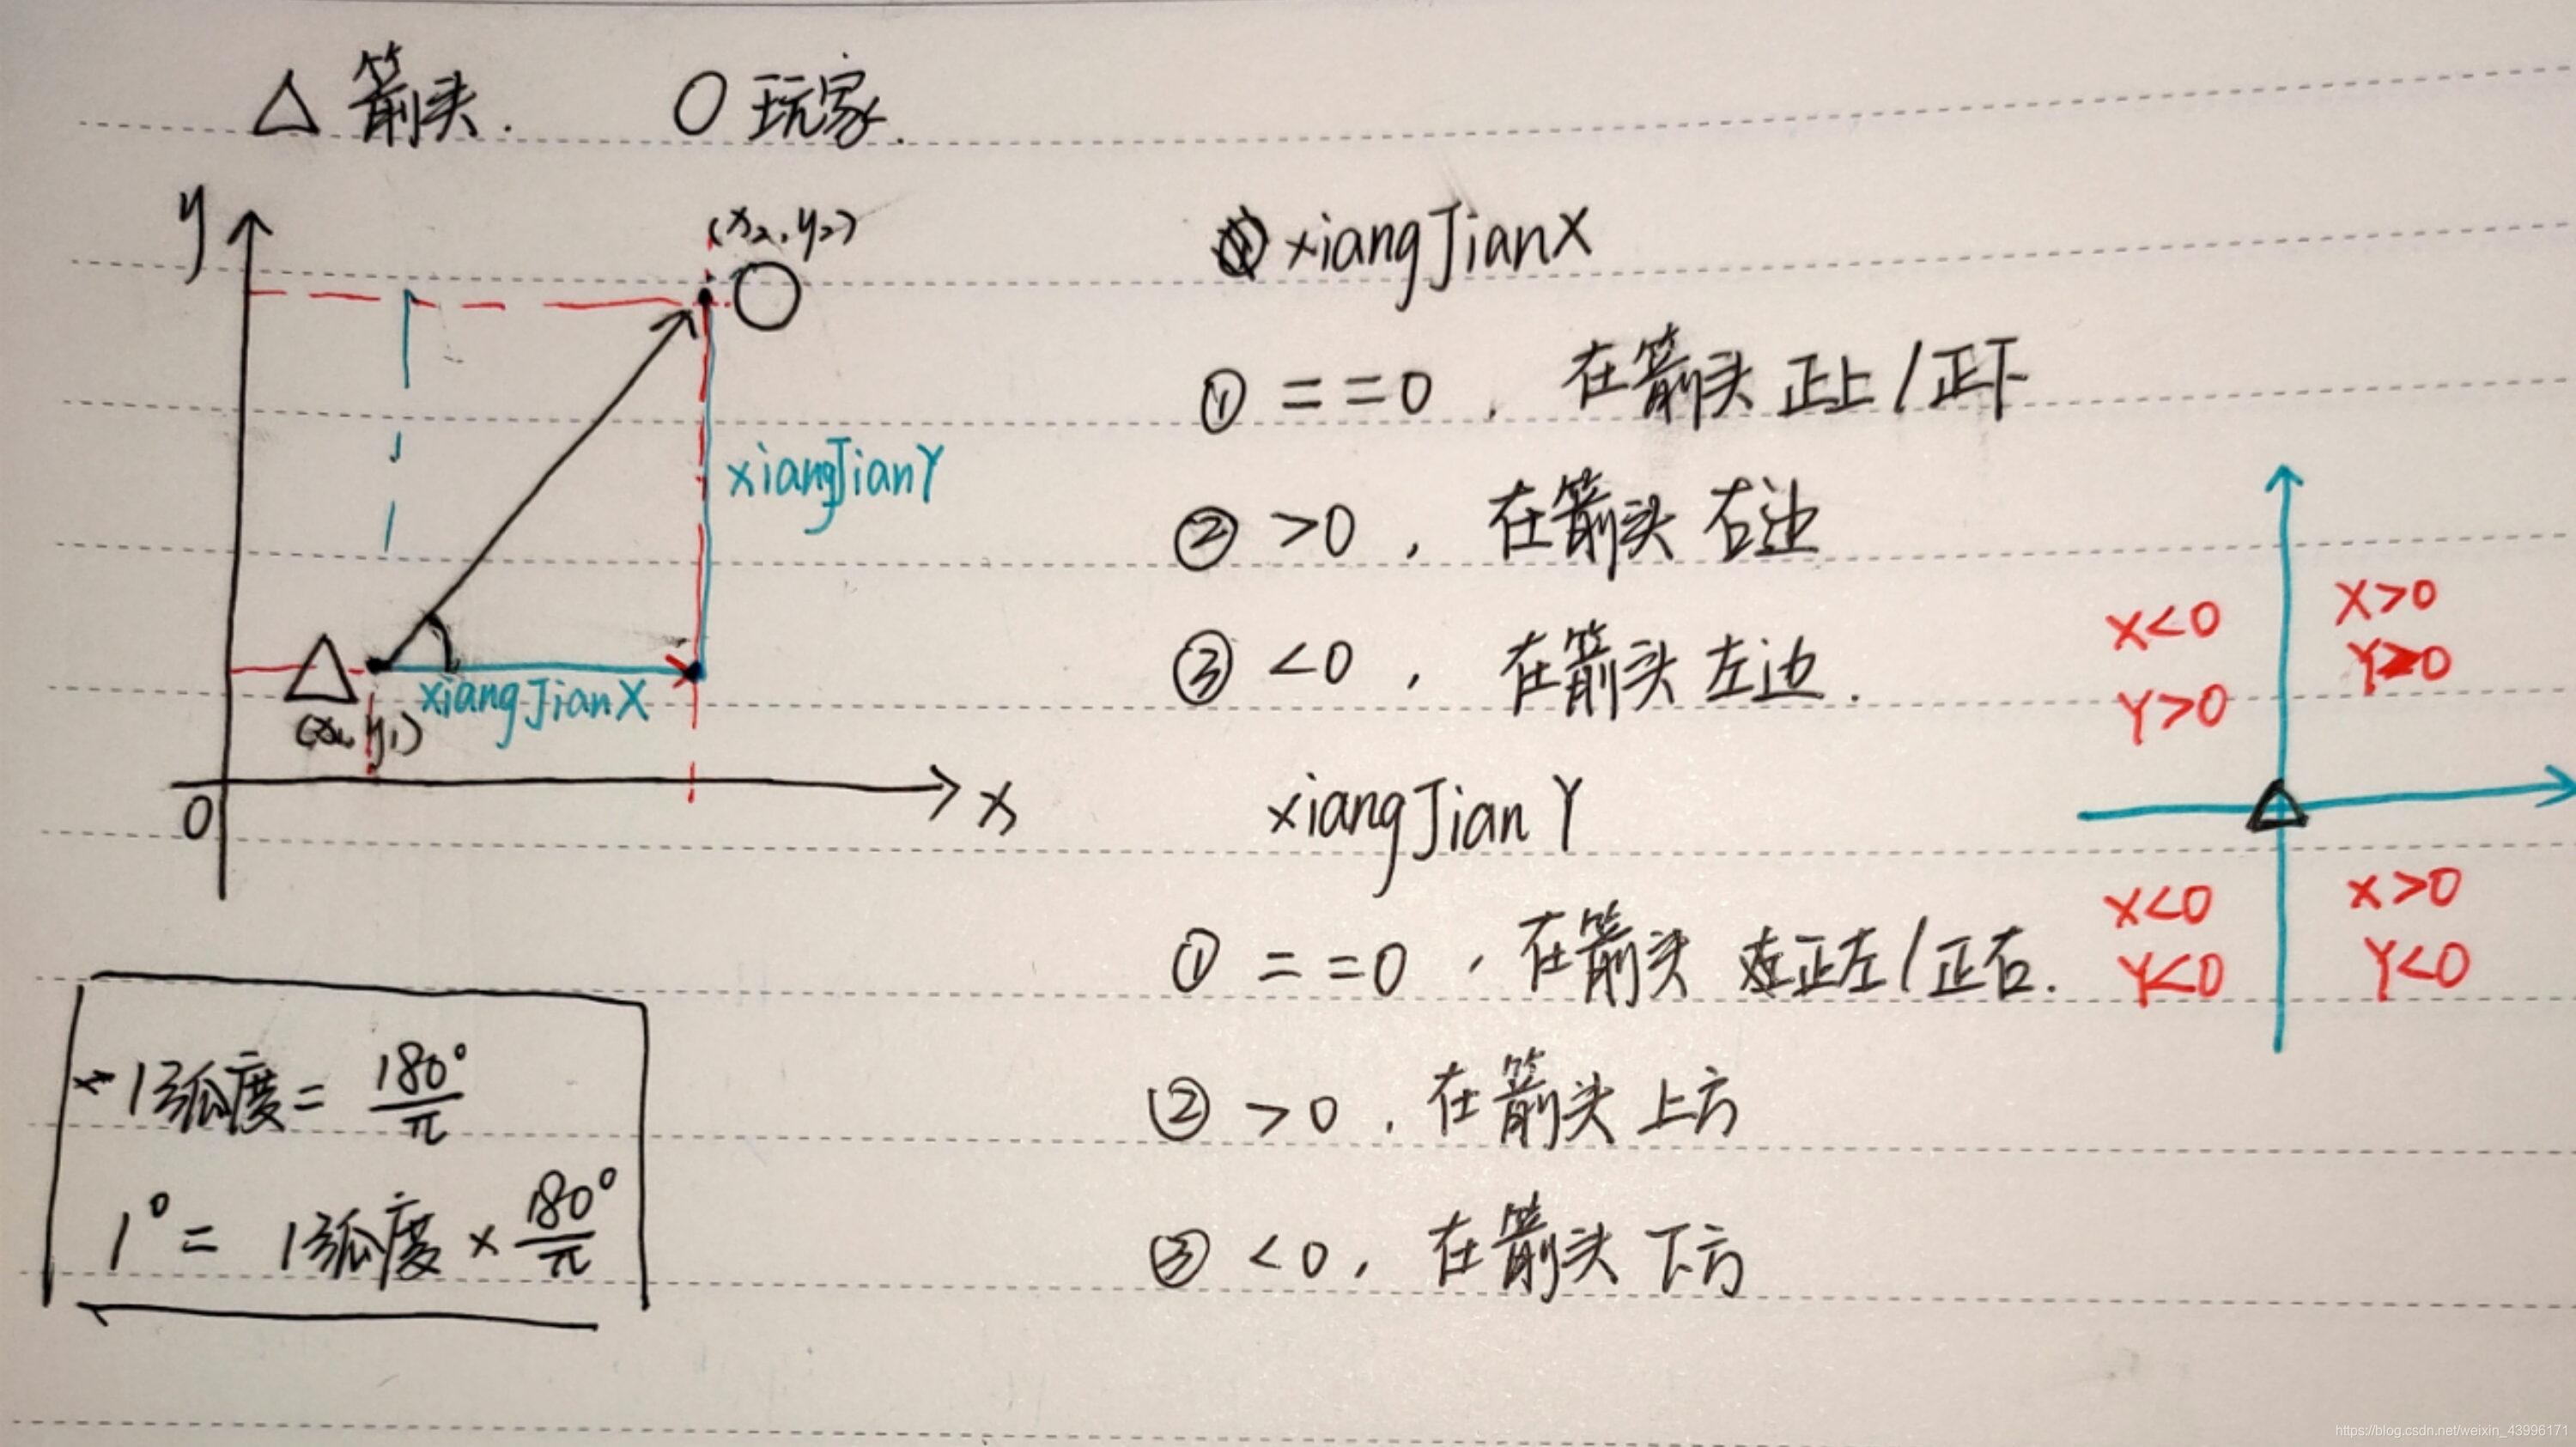 △ 箭头. ○ 玩家.
y
(x₂, y₂)
xiangJianY
xiangJianX
(x₁, y₁)
0
x
1弧度 = 180°/π
1° = 1弧度 × 180°/π
xiangJianX
① ==0, 在箭头 正上/正下
② >0, 在箭头 右边
③ <0, 在箭头 左边.
xiangJianY
① ==0, 在箭头 正左/正右.
② >0, 在箭头 上方
③ <0, 在箭头 下方
X<0
Y>0
X>0
Y>0
X<0
Y<0
X>0
Y<0
https://blog.csdn.net/weixin_43996171